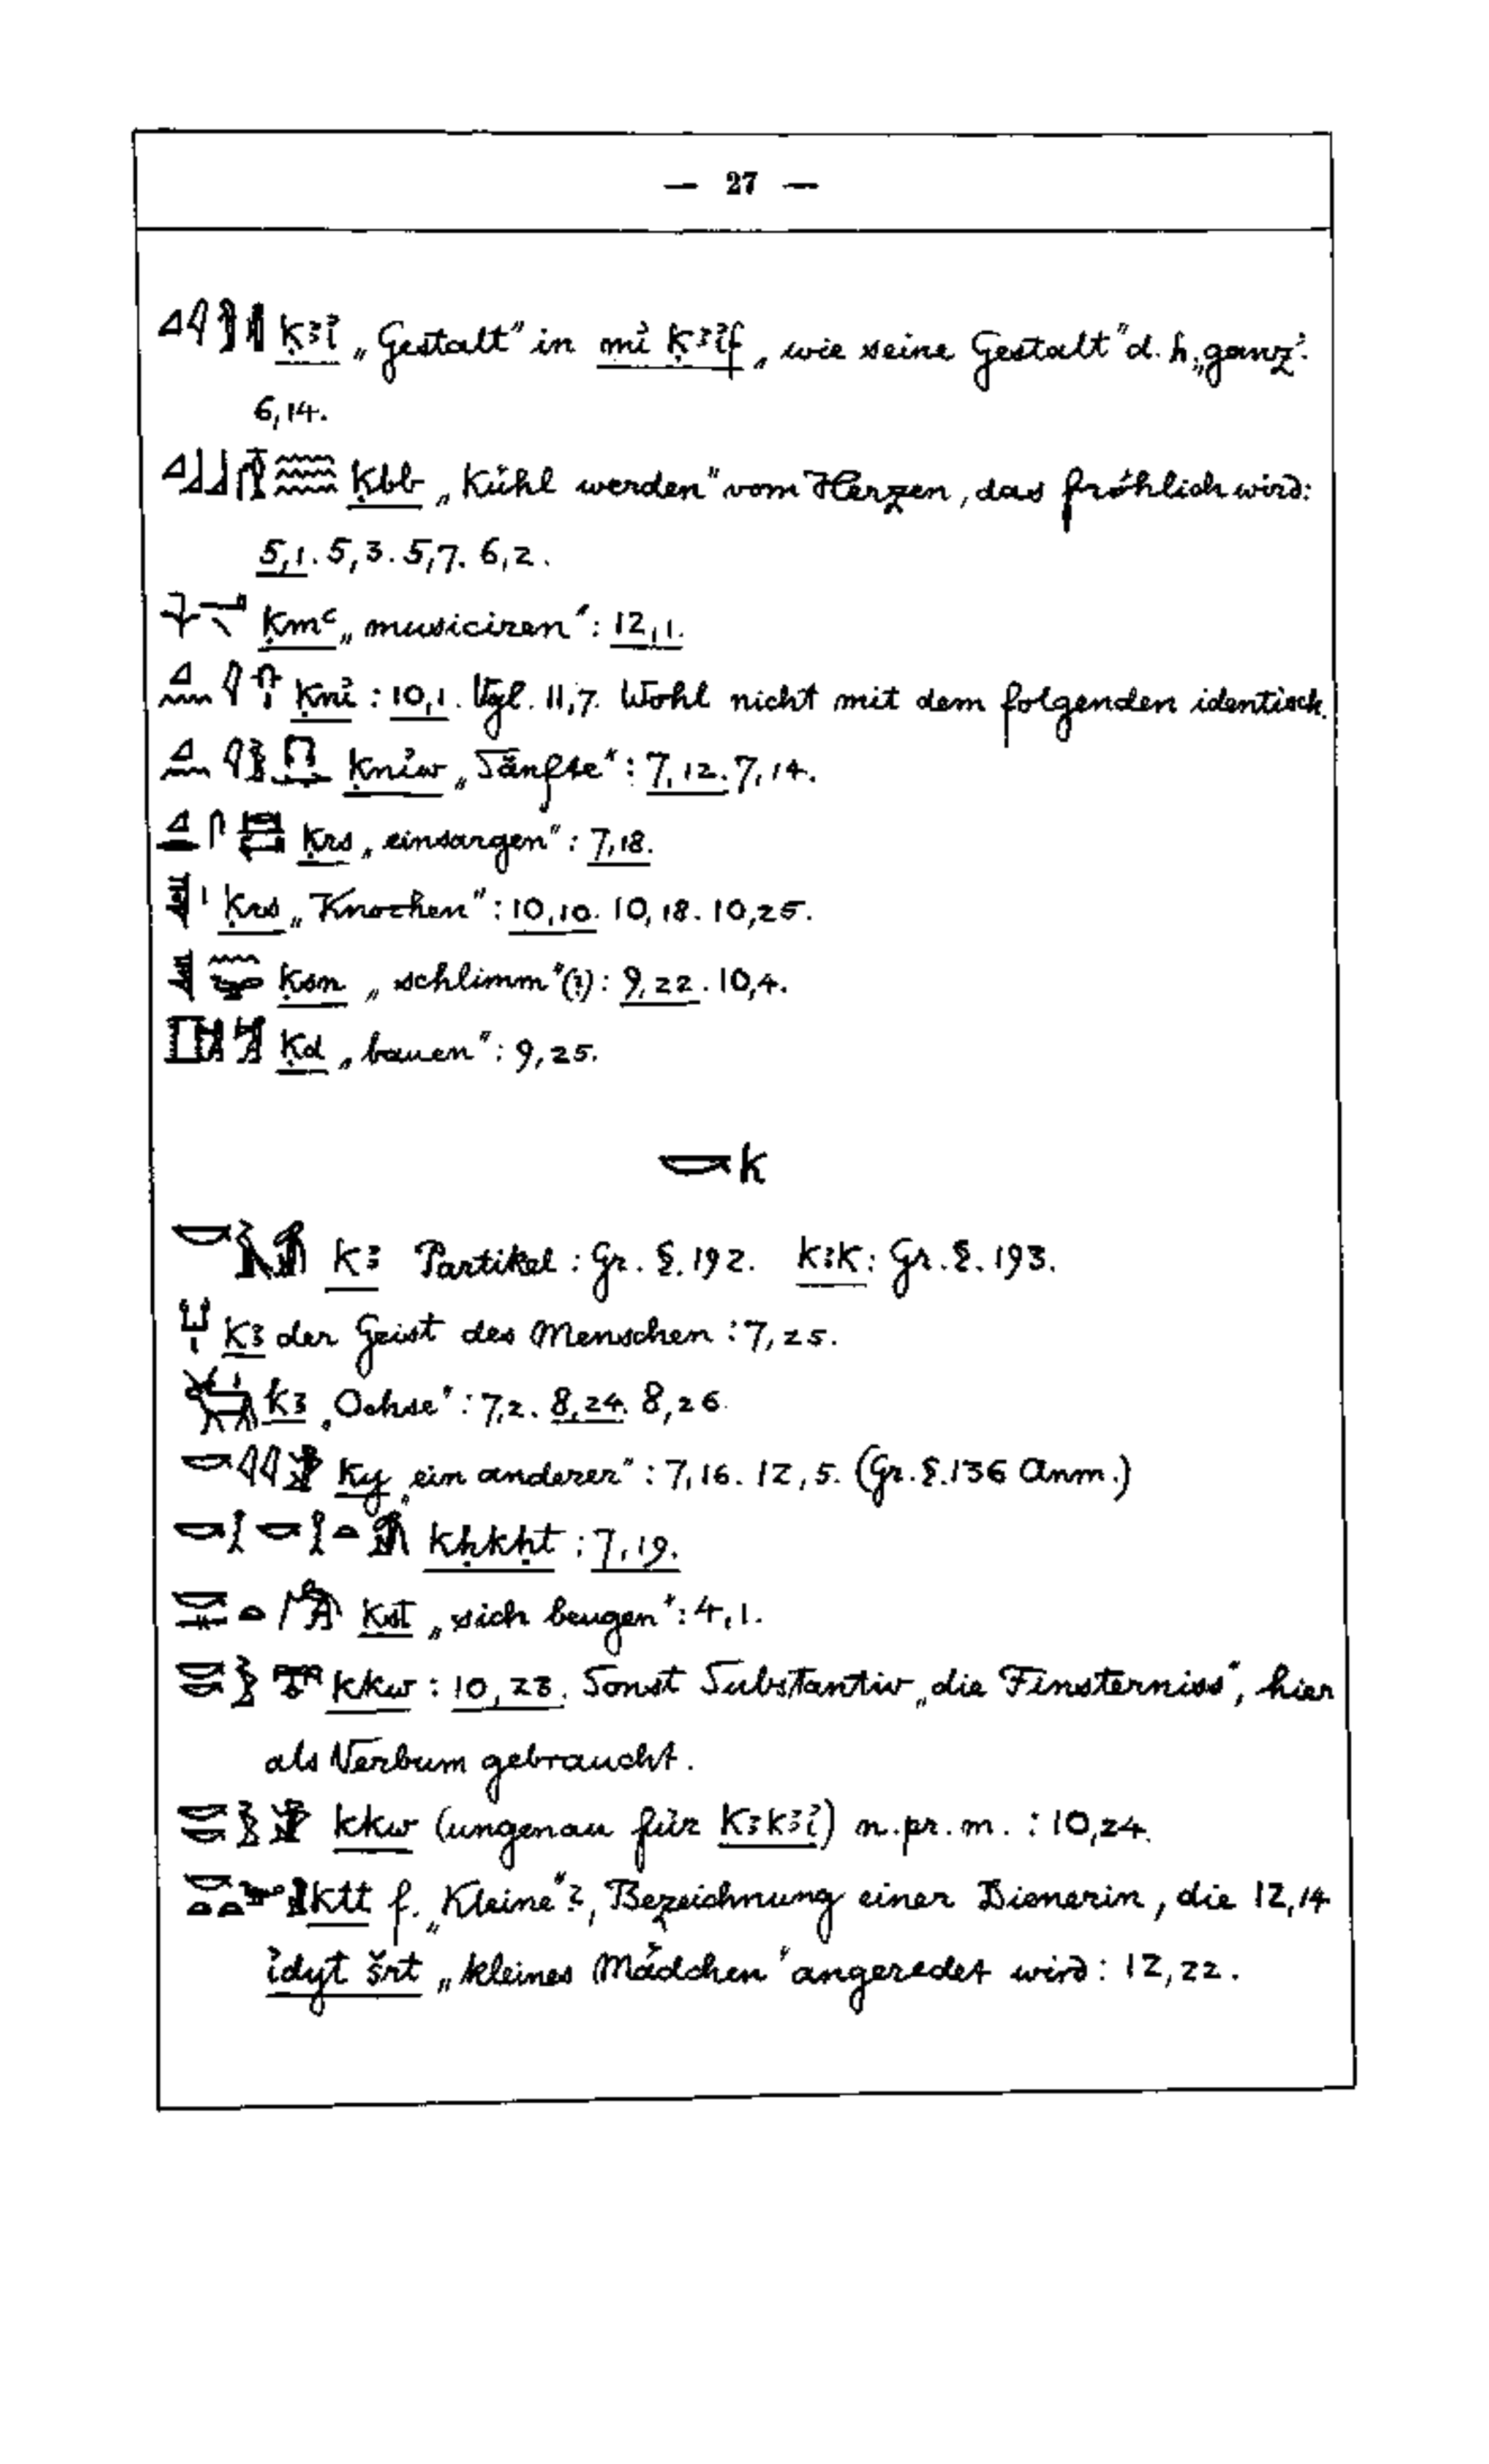 — 27 —
ḳꜣỉ „Gestalt" in mỉ ḳꜣỉf „wie seine Gestalt" d. h. „ganz":
6,14.
ḳbb „Kühl werden" vom Herzen, das fröhlich wird:
5,1. 5,3. 5,7. 6,2.
ḳmꜥ „musiciren": 12,1.
ḳnỉ : 10,1. Vgl. 11,7. Wohl nicht mit dem folgenden identisch.
ḳnỉw „Sänfte": 7,12. 7,14.
ḳrs „einsargen": 7,18.
ḳrs „Knochen": 10,10. 10,18. 10,25.
ḳsn „schlimm"(?): 9,22. 10,4.
ḳd „bauen": 9,25.
k
kꜣ Partikel: Gr. §. 192. kꜣk: Gr. §. 193.
kꜣ der Geist des Menschen: 7,25.
kꜣ „Ochse": 7,2. 8,24. 8,26.
ky „ein anderer": 7,16. 12,5. (Gr. §. 136 Anm.)
kḥkḥt : 7,19.
kst „sich beugen": 4,1.
kkw : 10,23. Sonst Substantiv „die Finsterniss", hier
als Verbum gebraucht.
kkw (ungenau für kꜣkꜣỉ) n. pr. m. : 10,24.
ktt f. „Kleine"?, Bezeichnung einer Dienerin, die 12,14
ỉdyt šrt „kleines Mädchen" angeredet wird: 12,22.